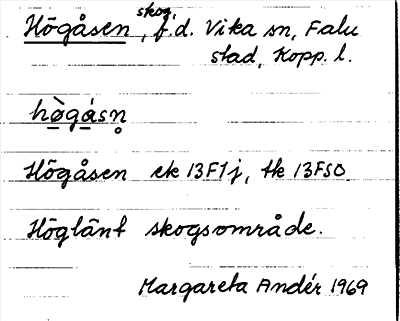 Högåsen, skog, f.d. Vika sn, Falu
stad, Kopp. l.
hò̱gá̱sn̥
Högåsen ek 13F1j, tk 13FSO
Höglänt skogsområde.
Margareta Andér 1969